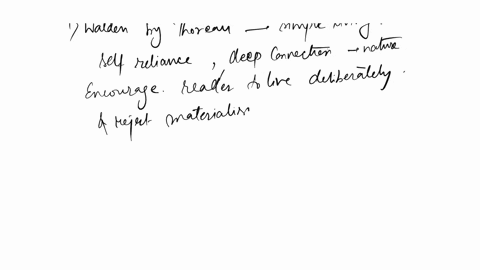 1) Walden by Thoreau → simple living.
self reliance, deep connection → nature
Encourage. reader to live deliberately.
& reject materialis